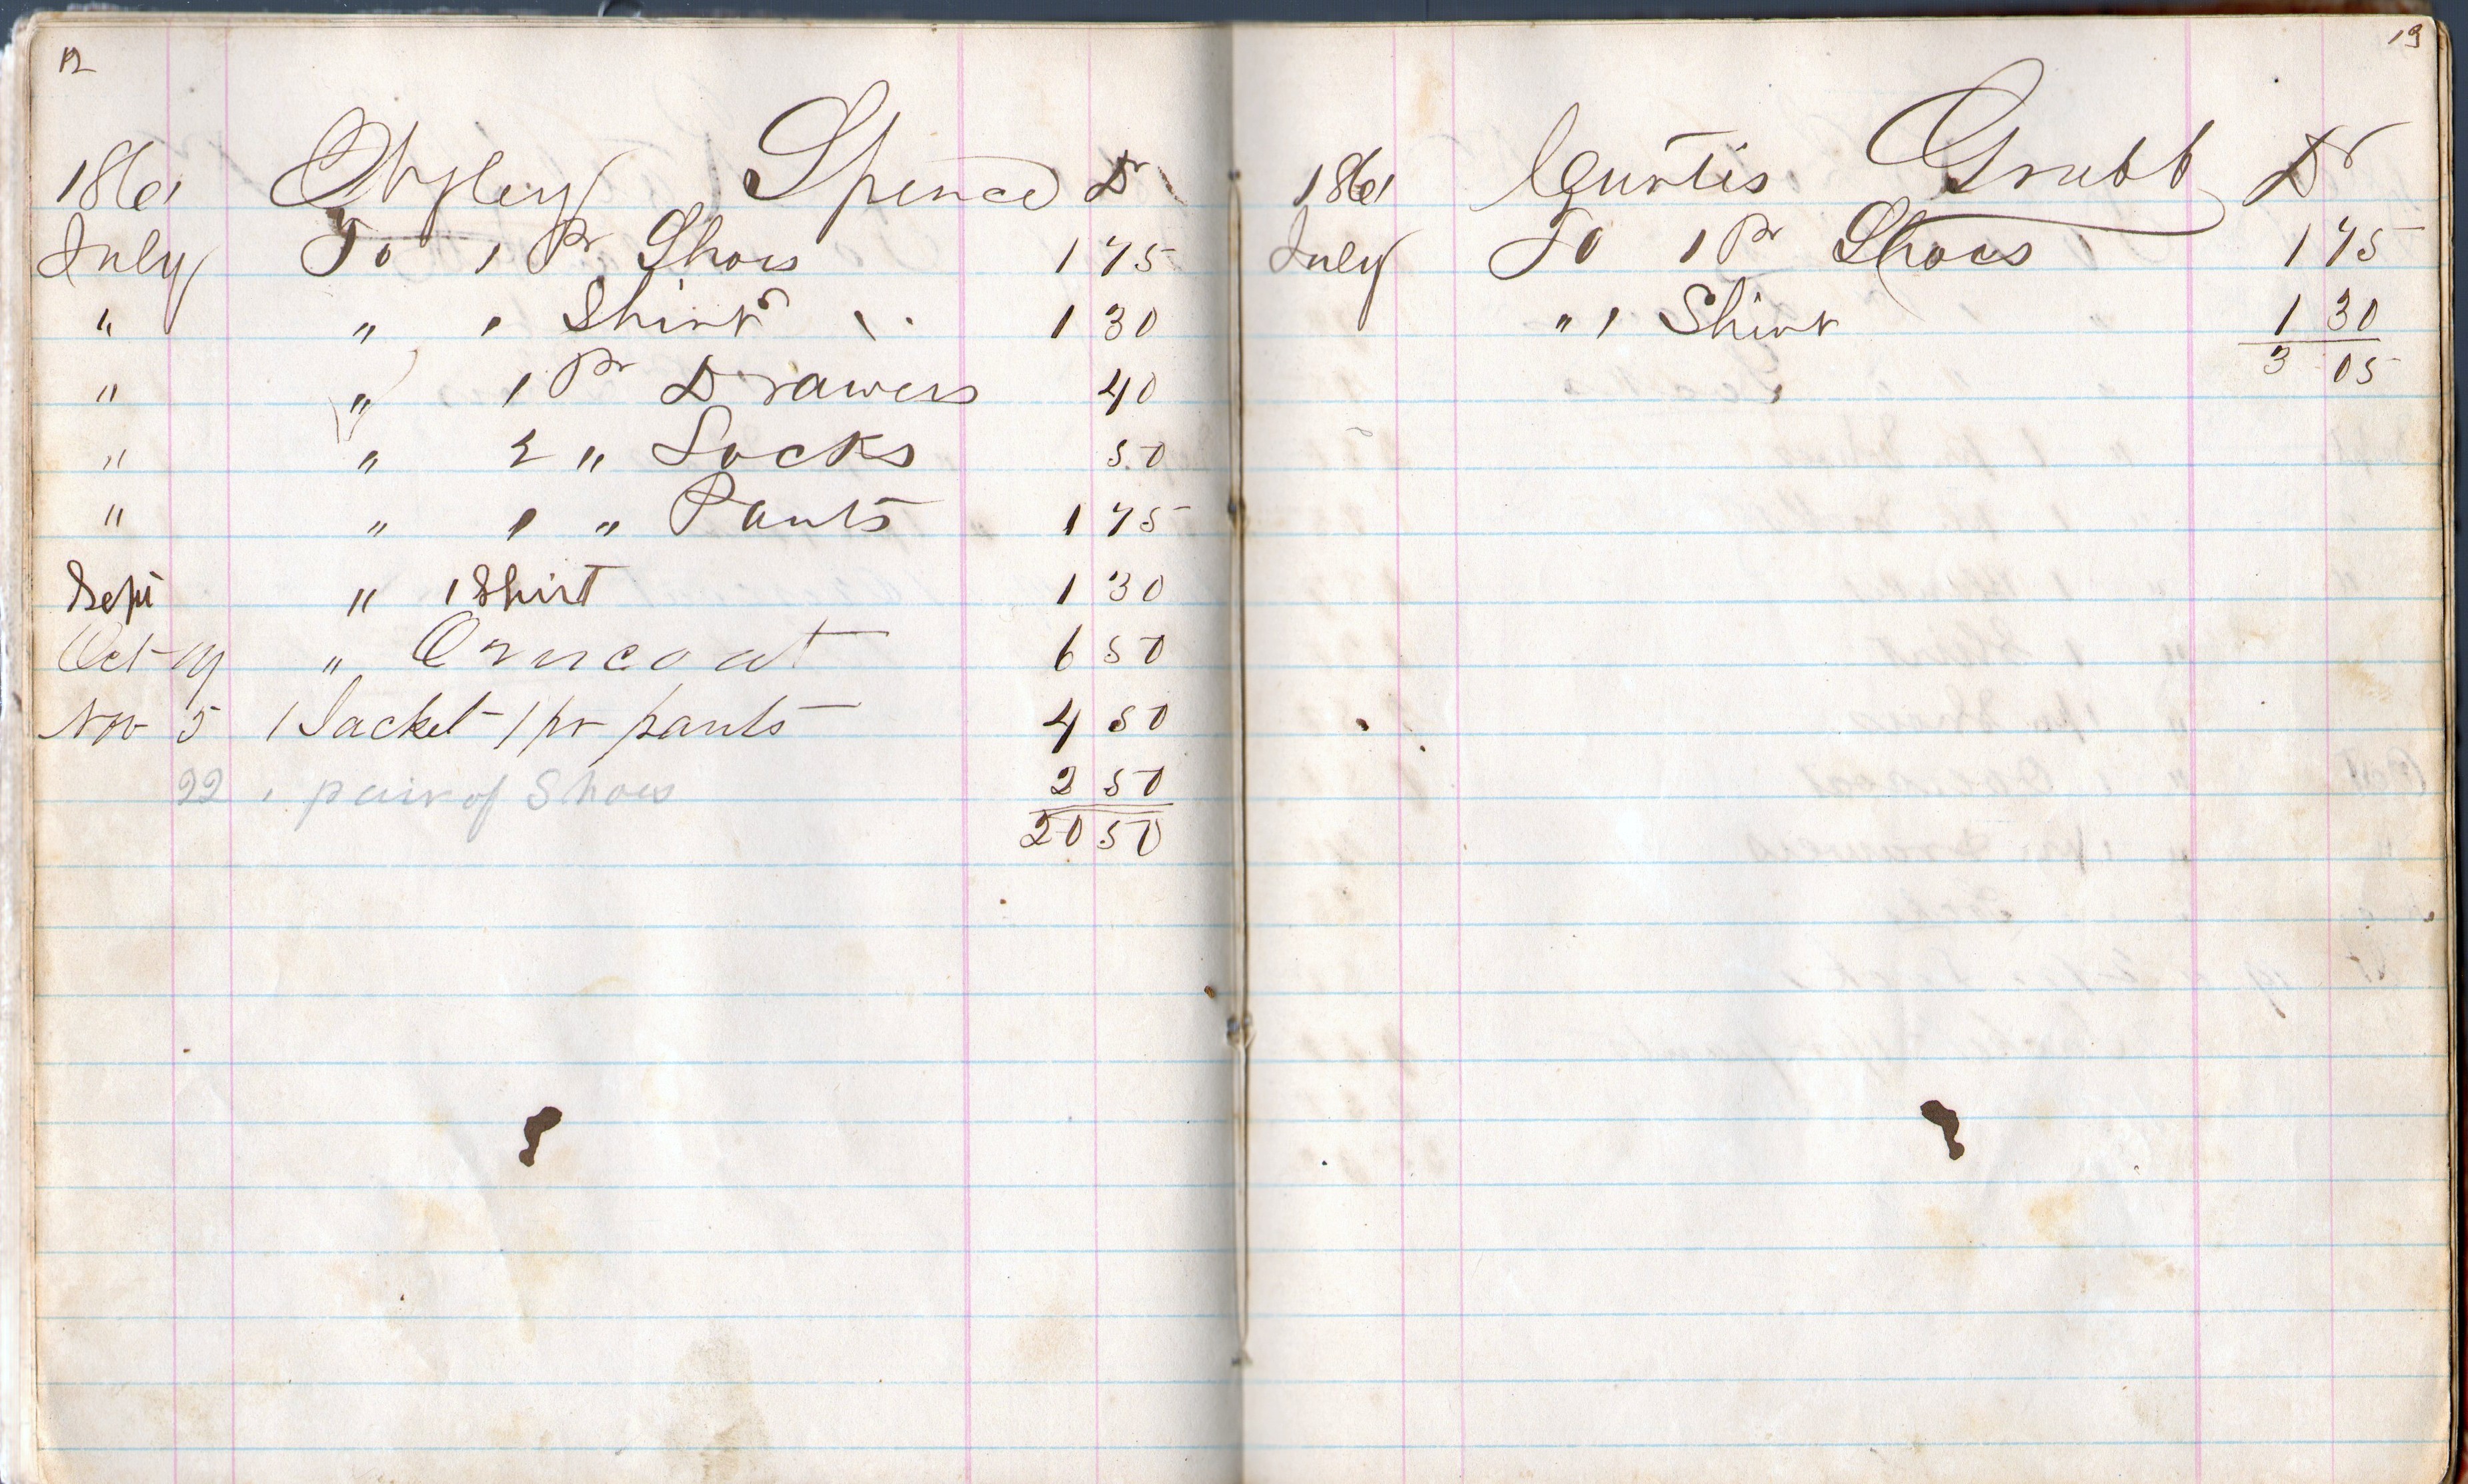 12
1861 Spence Dr
July To 1 Pr Shoes 1 75
" " 1 Shirt 1 30
" " 1 Pr Drawers 40
" " 2 " Socks 50
" " 1 " Pants 1 75
Sept " 1 Shirt 1 30
Oct 19 " Overcoat 6 50
Nov 5 1 Jacket 1 pr pants 4 50
22 1 pair of Shoes 2 50
20 50
13
1861 Curtis Grubb Dr
July To 1 Pr Shoes 1 75
" 1 Shirt 1 30
3 05